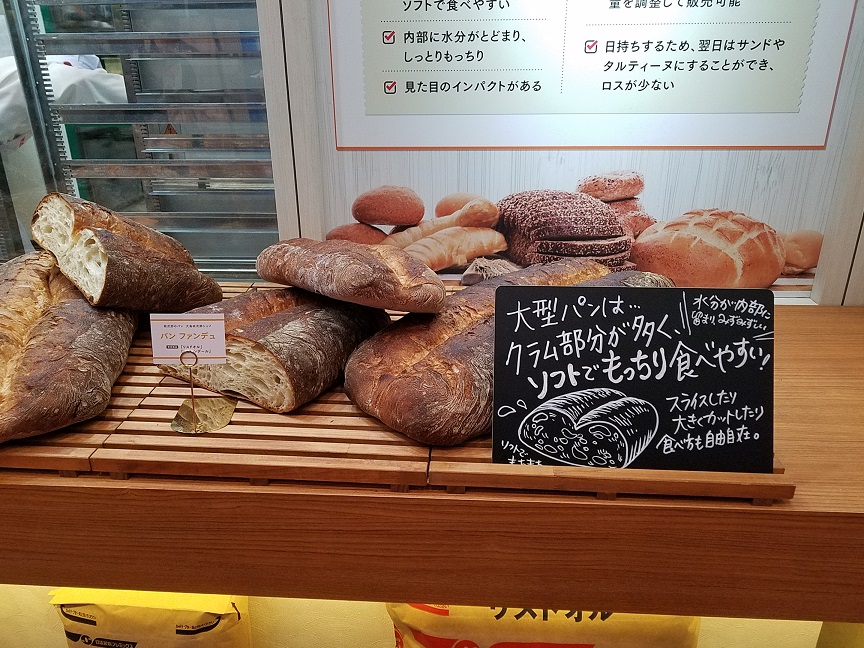 ソフトで食べやすい
内部に水分がとどまり、
しっとりもっちり
見た目のインパクトがある
量を調整して販売可能
日持ちするため、翌日はサンドや
タルティーヌにすることができ、
ロスが少ない
パン ファンデュ
大型パンは…
クラム部分が多く、
ソフトでもっちり食べやすい!
水分が内部に
留まりみずみずしい
スライスしたり
大きくカットしたり
食べ方も自由自在。
ソフトで
リスドオル